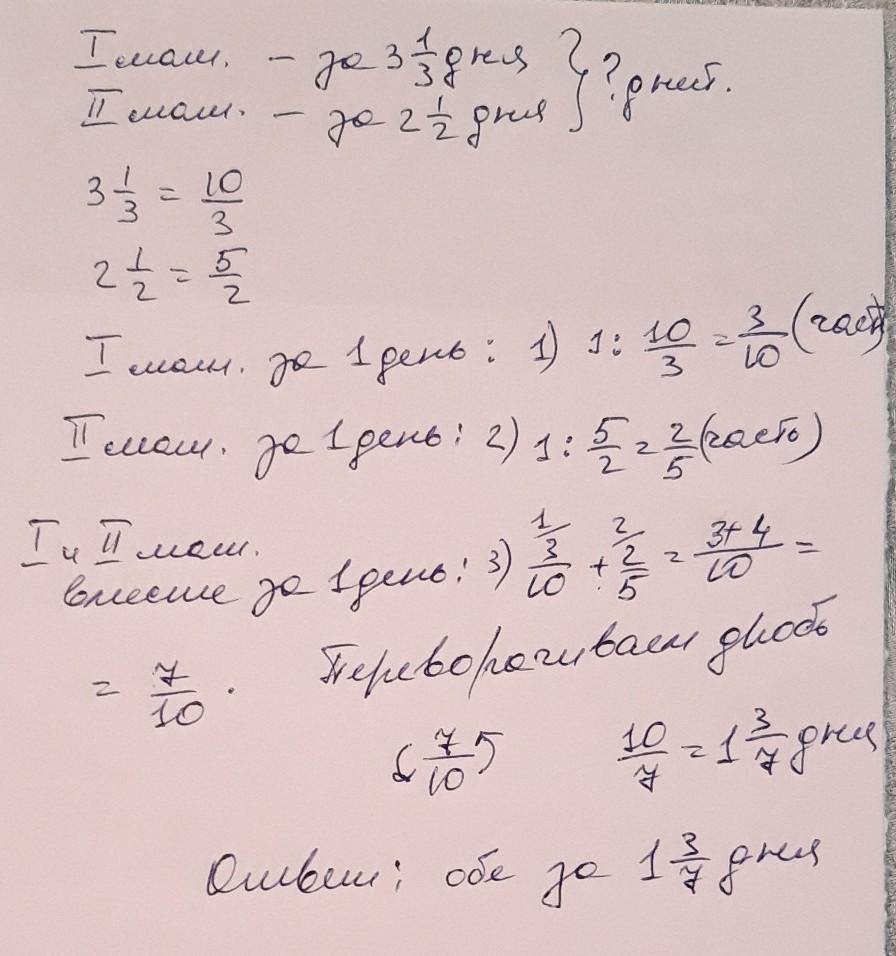 I маш. – за 3 1/3 дня } ? дней.
II маш. – за 2 1/2 дня
3 1/3 = 10/3
2 1/2 = 5/2
I маш. за 1 день: 1) 1 : 10/3 = 3/10 (часть)
II маш. за 1 день: 2) 1 : 5/2 = 2/5 (часть)
I и II маш.
вместе за 1 день: 3) 1/ 3/10 + 2/ 2/5 = 3+4/10 =
= 7/10 . Переворачиваем дробь
7/10 10/7 = 1 3/7 дня
Ответ: обе за 1 3/7 дня